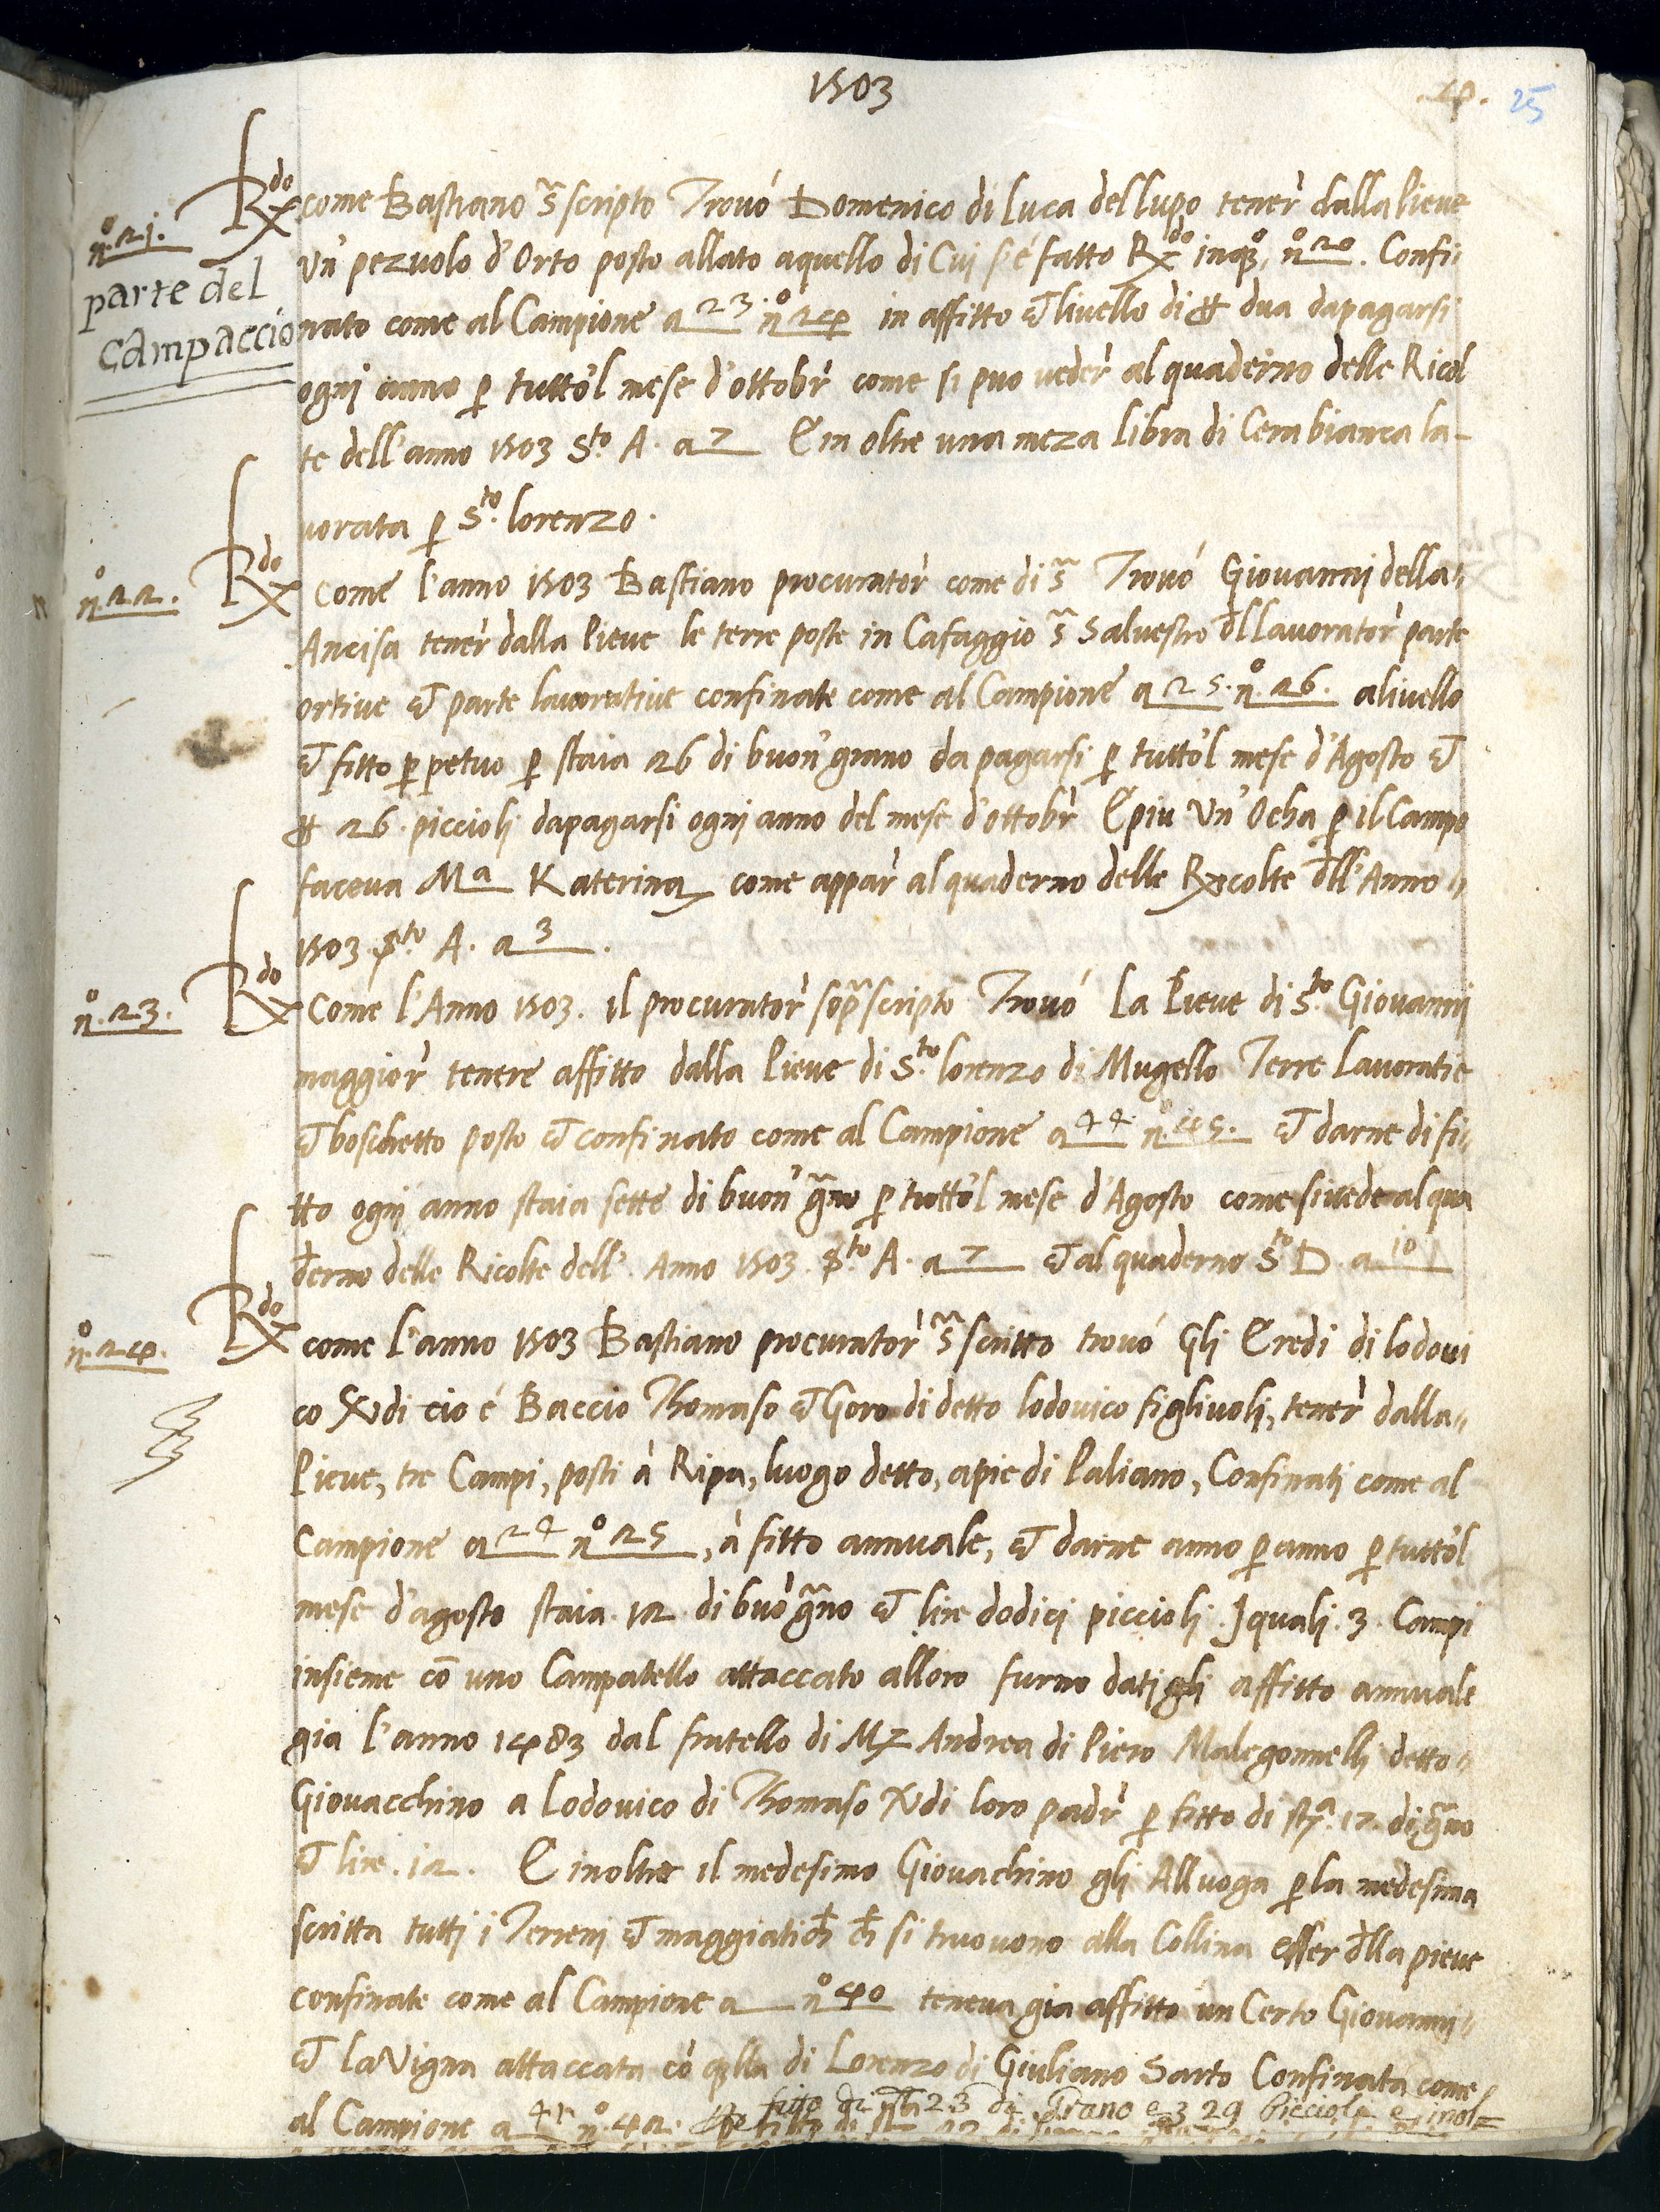 1503
4. 25
Rdo come Bastiano sa scripto Trovó Domenico di luca del lupo tener dalla Pieve
n.o 21.
parte del
campaccio
Un' pezuolo d'Orto posto allato aquello di Cui s'é fatto Rdo in qo, no 20. Confi
nato come al Campione a 23. no 24 in affitto et livello di ₶ dua dapagarsi
ogni anno p tutto'l mese d'ottobr come si puo veder al quaderno delle Ricol
te dell'anno 1503 Sto A. a 7 E in oltre una meza libra di Cera bianca la-
vorata p Sto. lorenzo.
n.o 22.
Rdo Come l'anno 1503 Bastiano procurator come di sa Trovó Giovannj della
Ancisa tener dalla Pieve le terre poste in Cafaggio sa Salvestro dll lavorator parte
ortive et parte lavorative confinate come al Campione a 25. no. 26. alivello
et fitto p petuo p staia 26 di buon' grano da pagarsi p tutto'l mese d'Agosto et
₶ 26. piccioli dapagarsi ogni anno del mese d'ottobr E piu Un' Ocha p il Campo
faceva Ma Katerina come appar al quaderno delle Rxcolte dll' Anno
1503. Sto A. a 3.
n.o 23.
Rdo Come l'Anno 1503. il procurator sopra scripto Trovó La Pieve di Sto. Giovannj
maggior tenere affitto dalla Pieve di Sto. lorenzo di Mugello Terre Lavoratie
et boschetto posto et confinato come al Campione a 44. no. 45. et darne di fi
tto ogni anno staia sette di buon' grano p tutto'l mese d'Agosto come si vede al qua
derno delle Ricolte dell'. Anno 1503. Sto A. a 7 et al quaderno Sto D. a 10
n.o 24.
Rdo come l'anno 1503 Bastiano procurator sa scritto trovó Gli Eredi di lodovi
co Ndi cio é Baccio Thomaso et Goro di detto lodovico figlivoli, tener dalla
Pieve, tre Campi, posti à Ripa, luogo detto, apie di Paliano, Confinati come al
Campione a 24 no 25, à fitto annuale, et darne anno p anno p tutto'l
mese d'agosto staia. 12. di buo' grano et lire dodici piccioli. J quali. 3. Campi
insieme cō uno Campatello attaccato alloro furno dati gli affitto annuale
gia l'anno 1483 dal fratello di Mz Andrea di Piero Malegonnelli detto
Giovacchino a Lodovico di Thomaso Ndi loro padr p fitto di sta. 12. di grano
et lire. 12. E inoltre il medesimo Giovachino gli Alluoga p la medesima
scritta tutti i Terreni et maggiatich ch si truovono alla Collina esser dlla pieve
confinate come al Campione a no 40 teneva gia affitto un Certo Giovanni
et la Vigna attaccata co qlla di Lorenzo di Giuliano Sarto Confinata come
al Campione a 41 no. 42. fitto di sta 23 di Grano e 3 29 Piccioli e inol=